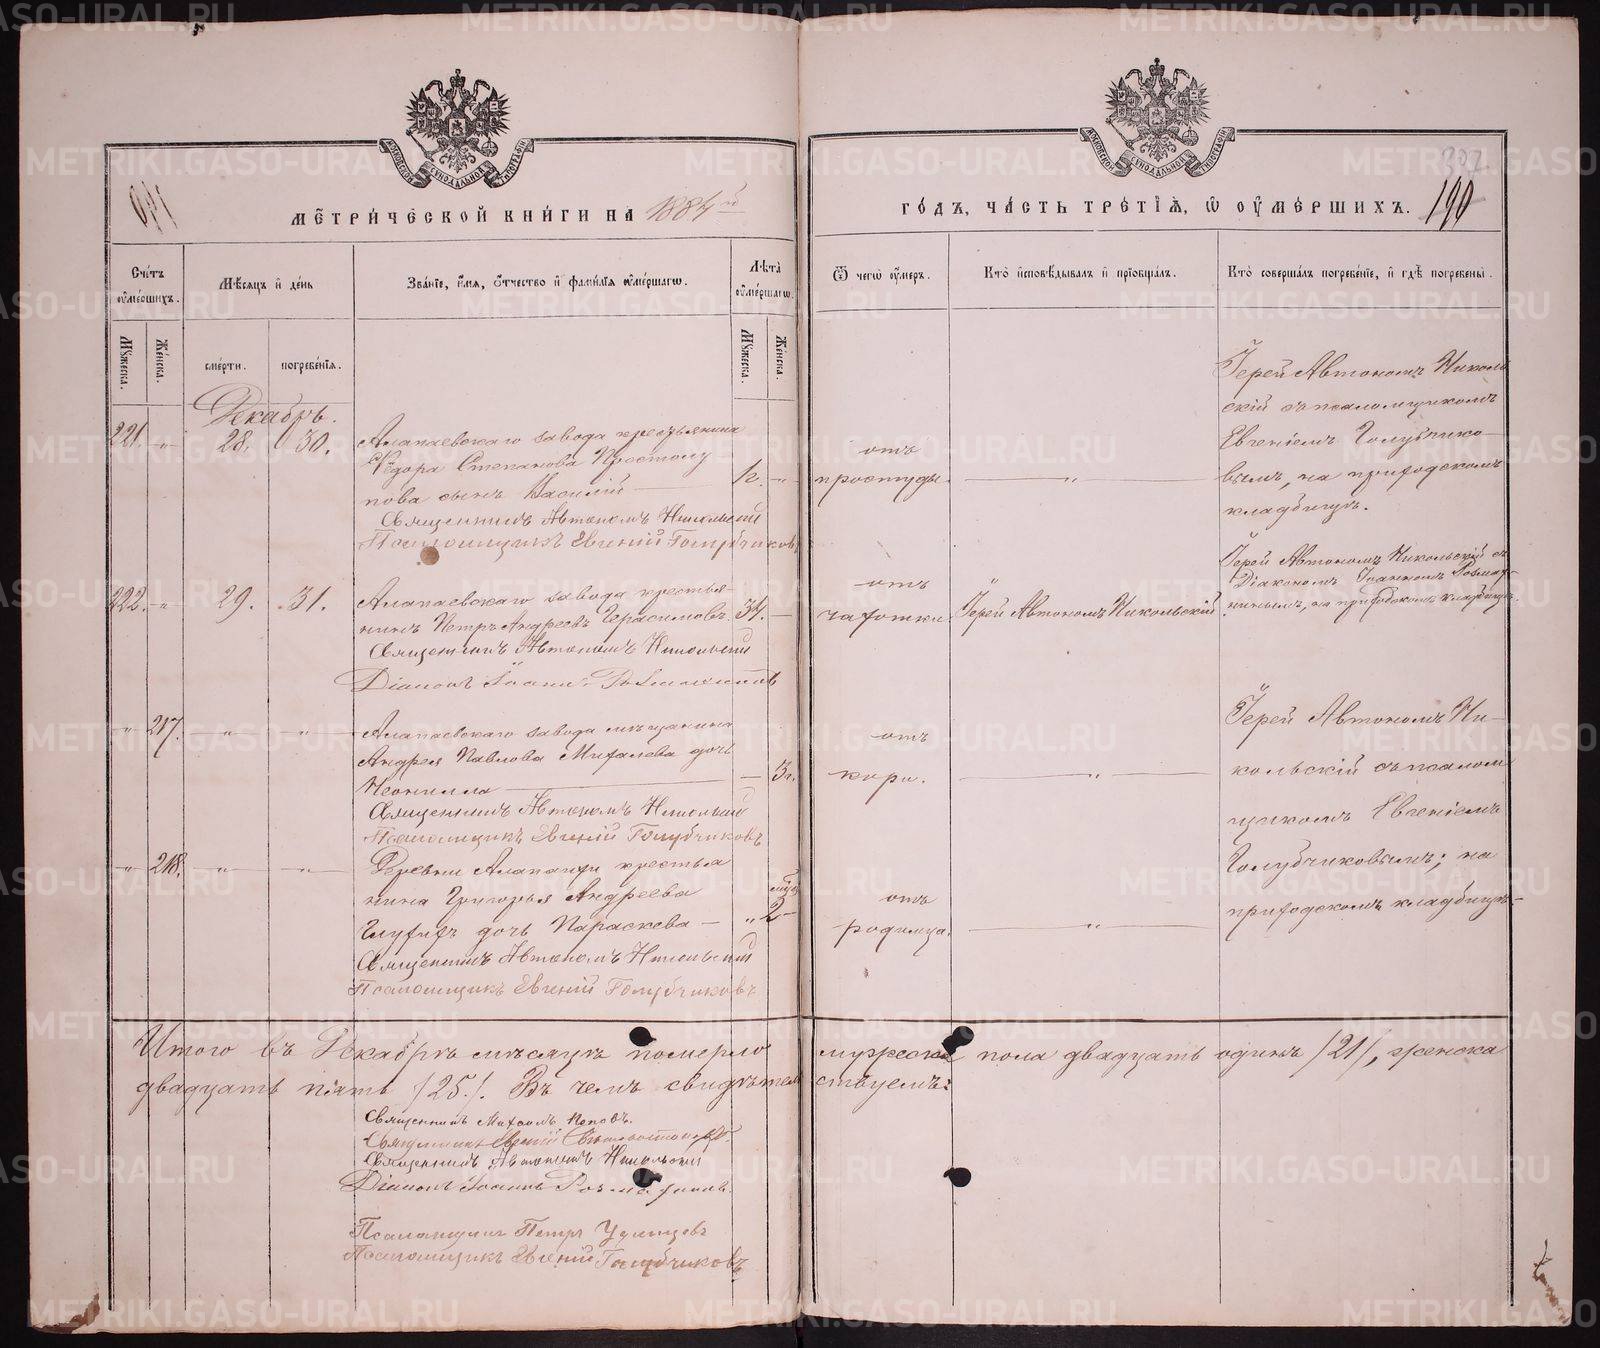 МЕТРИЧЕСКОЙ КНИГИ НА 1884й
ГОДЪ, ЧАСТЬ ТРЕТІЯ, Ѿ ОУМЕРШИХЪ.
190
Счетъ оумершихъ.
Мѣсяцъ и день
Званіе, имя, отчество и фамилія оумершагω.
Лѣта оумершагω.
Ѿ чегω оумеръ.
Кто исповѣдывалъ и пріобщалъ.
Кто совершалъ погребеніе, и гдѣ погребены.
Мужеска.
Женска.
смерти.
погребенія.
Мужеска.
Женска.
Декабрь.
221. " 28. 30.
Алапаевскаго завода крестьянина
Ѳедора Степанова Простолу
пова сынъ Василій
Священникъ Автономъ Никольскій
Псаломщикъ Евгеній Голубчиковъ
отъ
простуды.
"
Іерей Автономъ Николь
скій съ псаломщикомъ
Евгеніемъ Голубчико-
вымъ, на приходскомъ
кладбищѣ.
222. " 29. 31.
Алапаевскаго завода крестья-
нинъ Петръ Андреевъ Герасимовъ. 34. —
Священникъ Автономъ Никольскій
Діаконъ Іоаннъ
отъ
чахотки.
Іерей Автономъ Никольскій
Іерей Автономъ Никольскій съ
Діакономъ Іоанномъ
на приходскомъ кладбищѣ.
" 217. " "
Алапаевскаго завода мѣщанина
Андрея Павлова Михалева дочь
Неонилла — 3г.
Священникъ Автономъ Никольскій
Псаломщикъ Евгеній Голубчиковъ
отъ
кори.
"
Іерей Автономъ Ни-
кольскій съ псалом
щикомъ Евгеніемъ
Голубчиковымъ; на
приходскомъ кладбищѣ.
" 218. " —
Деревни Алапаихи крестья
нина Григорья Андреева
Глухихъ дочь Параскева — " 2
Священникъ Автономъ Никольскій
Псаломщикъ Евгеній Голубчиковъ
отъ
родимца.
"
Итого въ Декабрѣ мѣсяцѣ померло мужеска пола двадцать одинъ /21/, женска
двадцать пять /25/. Въ чемъ свидѣтельствуемъ:
Священникъ Михаилъ Поповъ.
Священникъ
Священникъ Автономъ Никольскій
Діаконъ Іоаннъ
Псаломщикъ Петръ Удинцевъ
Псаломщикъ Евгеній Голубчиковъ
METRIKI.GASO-URAL.RU